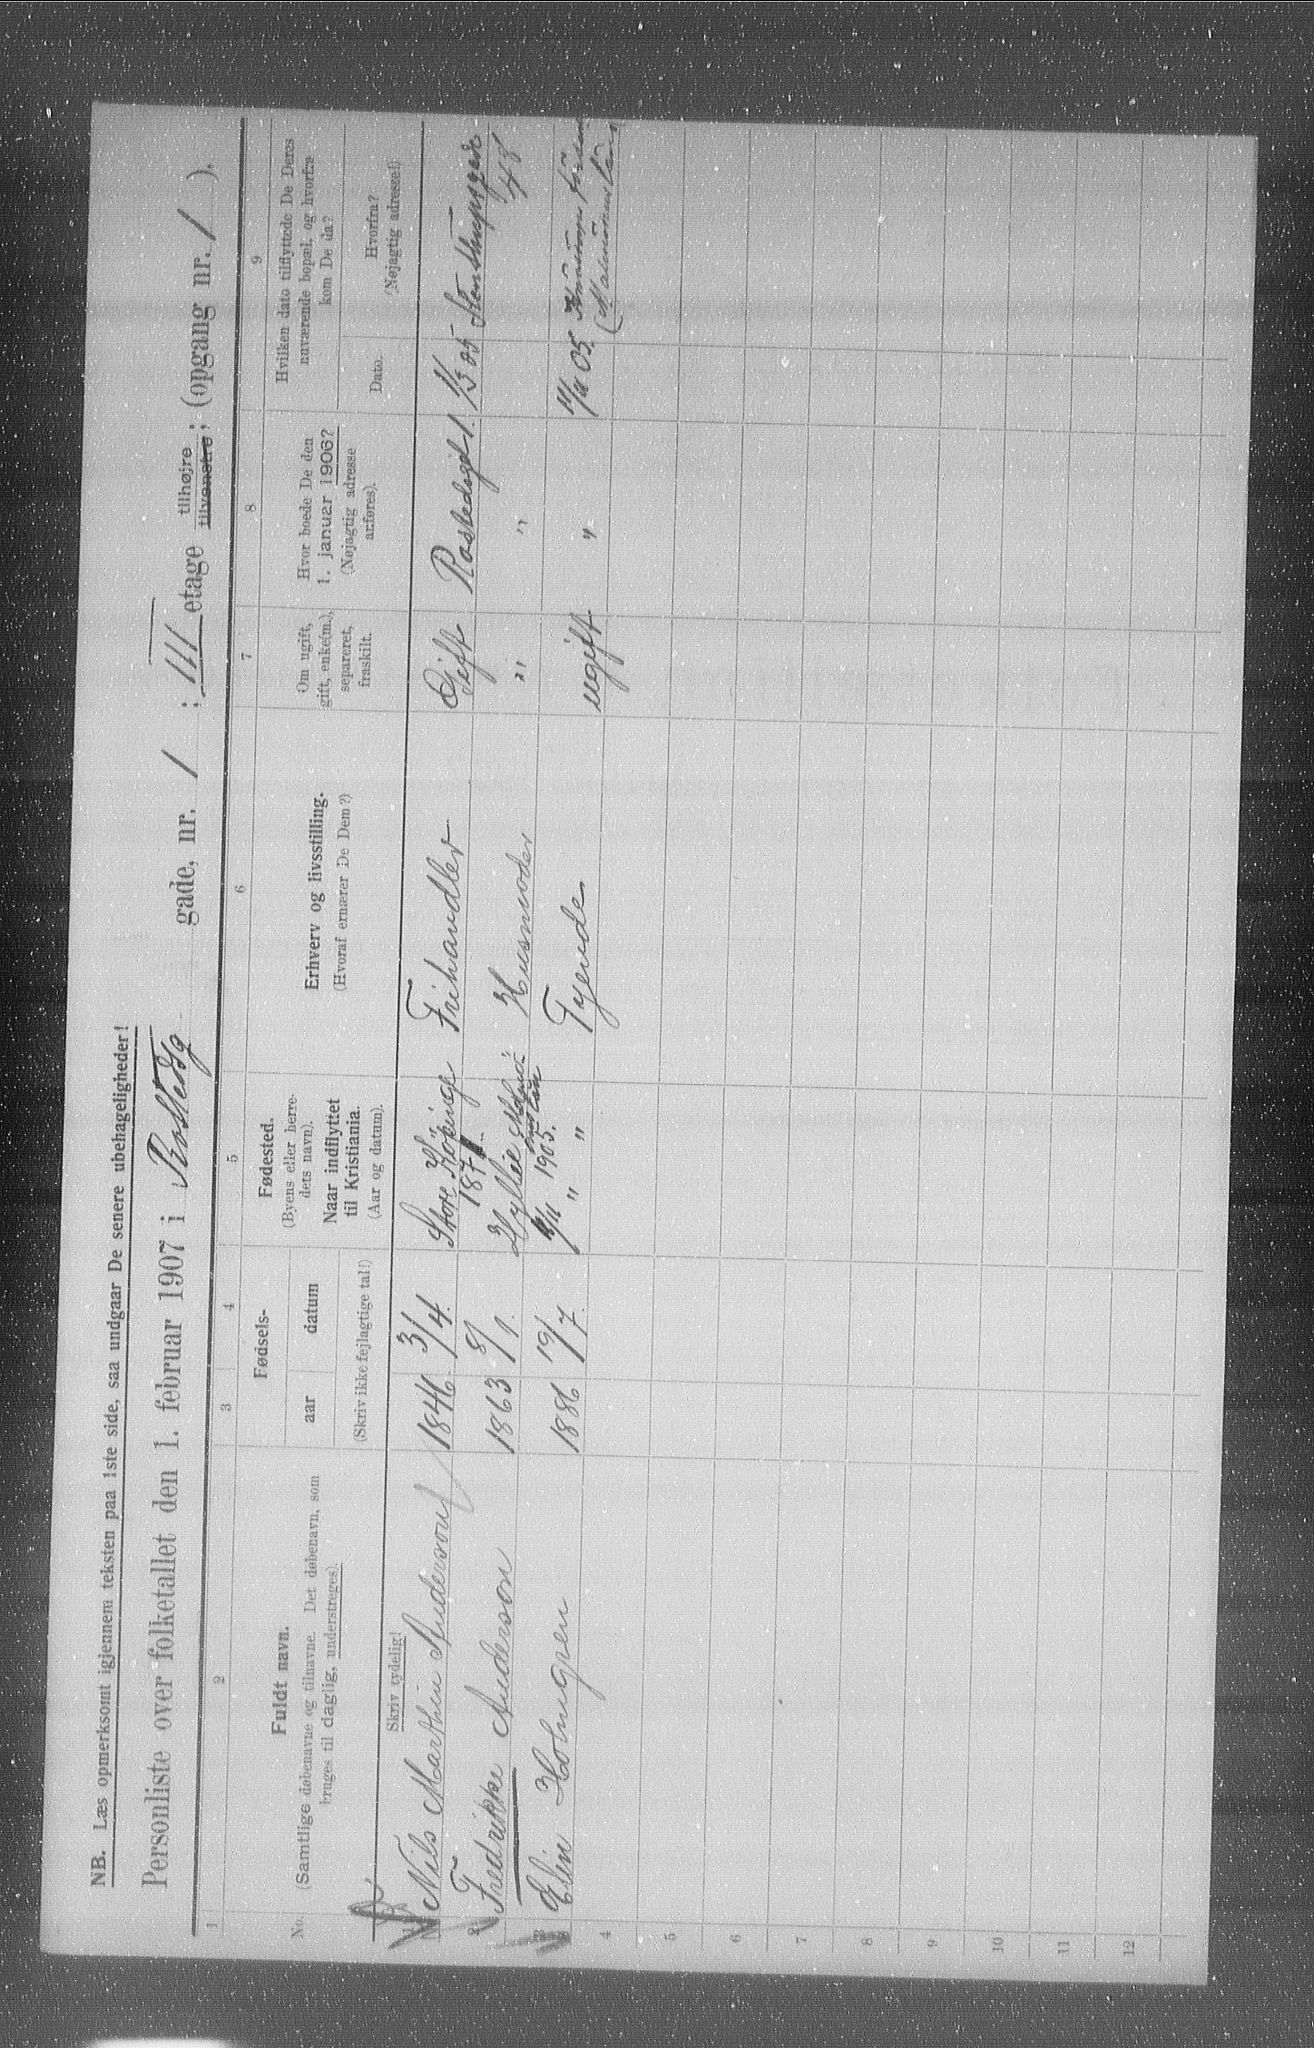 NB. Læs opmerksomt igjennem teksten paa 1ste side, saa undgaar De senere ubehageligheder!
Personliste over folketallet den 1. februar 1907 i Rostedsg gade, nr. 1 ; III etage tilhøjre tilvenstre; (opgang nr. 1 ).
1 2 3 4 5 6 7 8 9
No.
Fuldt navn.
(Samtlige døbenavne og tilnavne. Det døbenavn, som
bruges til daglig, understreges).
Skriv tydelig!
Fødsels-
aar datum
(Skriv ikke fejlagtige tal!)
Fødested.
(Byens eller herre-
dets navn).
Naar indflyttet
til Kristiania.
(Aar og datum).
Erhverv og livsstilling.
(Hvoraf ernærer De Dem?)
Om ugift,
gift, enke(m.),
separeret,
fraskilt.
Hvor boede De den
1. januar 1906?
(Nøjagtig adresse
anføres).
Hvilken dato tilflyttede De Deres
nuværende bopæl, og hvorfra
kom De da?
Dato.
Hvorfra?
(Nøjagtig adresse!)
1 Nils Marthin Anderson 1846 3/4. Store Köpinge 187 Frihandler Gift Rostedsgt 1. 1/3 05 Stenstrupgade 48
2 Fredrikke Anderson 1863 8/1. Hyllie 1905. Husmoder " "
3 Elin Holmgren 1886 19/7. " " Tyende ugift " 11/11 05.
4
5
6
7
8
9
10
11
12